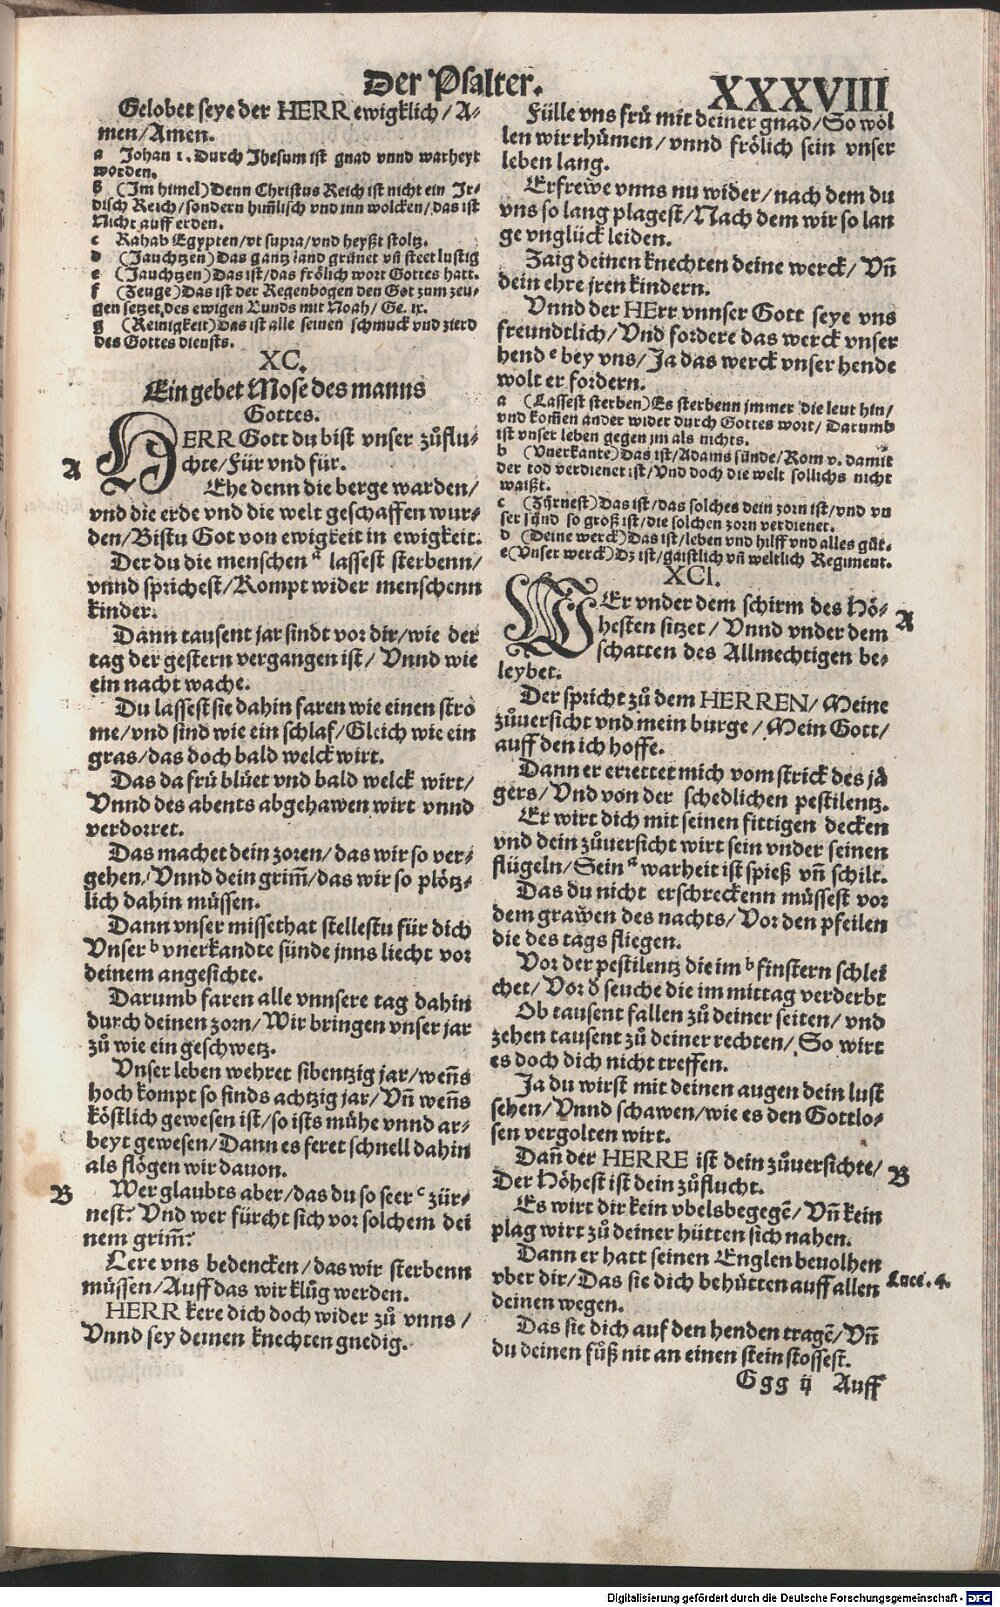 Der Psalter. XXXVIII
Gelobet seye der HERR ewigklich/A-
men/Amen.
a Johan 1. Durch Jhesum ist gnad vnnd warheyt
worden.
b (Im himel) Denn Christus Reich ist nicht ein Ir-
disch Reich/sondern him̃lisch vnd inn wolcken/das ist
Nicht auff erden.
c Rahab Egypten/vt supra/vnd heyßt stoltz.
d (Jauchtzen) Das gantz land grünet vñ steet lustig
e (Jauchtzen) Das ist/das frölich wort Gottes hatt.
f (Zeuge) Das ist der Regenbogen den Got zum zeu-
gen setzet,des ewigen Bunds mit Noah/Ge. ix.
g (Reinigkeit) Das ist alle seinen schmuck vnd zierd
des Gottes diensts.
XC.
Ein gebet Mose des manns
Gottes.
A
HERR Gott du bist vnser zůflu-
chte/Für vnd für.
Ehe denn die berge warden/
vnd die erde vnd die welt geschaffen wur-
den/Bistu Got von ewigkeit in ewigkeit.
Der du die menschen a lassest sterbenn/
vnnd sprichest/Kompt wider menschenn
kinder.
Dann tausent jar sindt vor dir/wie der
tag der gestern vergangen ist/ Vnnd wie
ein nacht wache.
Du lassest sie dahin faren wie einen stro
me/vnd sind wie ein schlaf/Gleich wie ein
gras/das doch bald welck wirt.
Das da frü blüet vnd bald welck wirt/
Vnnd des abents abgehawen wirt vnnd
verdorret.
Das machet dein zoren/das wir so ver-
gehen/Vnnd dein grim̃/das wir so plötz-
lich dahin müssen.
Dann vnser missethat stellestu für dich
Vnser b vnerkandte sünde jnns liecht vor
deinem angesichte.
Darumb faren alle vnnsere tag dahin
durch deinen zorn/Wir bringen vnser jar
zů wie ein geschwetz.
Vnser leben wehret sibentzig jar/weñs
hoch kompt so sinds achtzig jar/Vñ weñs
köstlich gewesen ist/so ists mühe vnnd ar-
beyt gewesen/Dann es feret schnell dahin
als flögen wir dauon.
B
Wer glaubts aber/das du so seer c zür-
nest? Vnd wer fürcht sich vor solchem dei
nem grim̃?
Lere vns bedencken/das wir sterbenn
müssen/Auff das wir klůg werden.
HERR kere dich doch wider zů vnns/
Vnnd sey deinen knechten gnedig.
Fülle vns frü mit deiner gnad/So wöl
len wir rhümen/vnnd frölich sein vnser
leben lang.
Erfrewe vnns nu wider/nach dem du
vns so lang plagest/Nach dem wir so lan
ge vnglück leiden.
Zaig deinen knechten deine werck/Vñ
dein ehre jren kindern.
Vnnd der HErr vnnser Gott seye vns
freundtlich/Vnd fordere das werck vnser
hend e bey vns/Ja das werck vnser hende
wolt er fordern.
a (Lassest sterben) Es sterbenn jmmer die leut hin/
vnd kom̃en ander wider durch Gottes wort/Darumb
ist vnser leben gegen jm als nichts.
b (Vnerkante) Das ist/Adams sünde/Rom v. damit
der tod verdienet ist/Vnd doch die welt sollichs nicht
waißt.
c (Zürnest) Das ist/das solches dein zorn ist/vnd vn
ser sünd so groß ist/die solchen zorn verdienet.
d (Deine werck) Das ist/leben vnd hilff vnd alles gůt.
e (Vnser werck) Dz ist/gaistlich vñ weltlich Regiment.
XCI.
A
WEr vnder dem schirm des Hö-
hesten sitzet/Vnnd vnder dem
schatten des Allmechtigen be-
leybet.
Der spricht zů dem HERREN/Meine
zůuersicht vnd mein burge/Mein Gott/
auff den ich hoffe.
Dann er errettet mich vom strick des jä
gers/Vnd von der schedlichen pestilentz.
Er wirt dich mit seinen fittigen decken
vnd dein zůuersicht wirt sein vnder seinen
flügeln/Sein a warheit ist spieß vñ schilt.
Das du nicht erschreckenn müssest vor
dem grawen des nachts/Vor den pfeilen
die des tags fliegen.
Vor der pestilentz die im b finstern schlei
chet/Vor d̕ seuche die im mittag verderbt
Ob tausent fallen zů deiner seiten/vnd
zehen tausent zů deiner rechten/So wirt
es doch dich nicht treffen.
Ja du wirst mit deinen augen dein lust
sehen/Vnnd schawen/wie es den Gottlo-
sen vergolten wirt.
B
Dañ der HERRE ist dein zůuersichte/
Der Höhest ist dein zůflucht.
Es wirt dir kein vbels begegẽ/Vñ kein
plag wirt zů deiner hütten sich nahen.
Dann er hatt seinen Englen beuolhen
vber dir/Das sie dich behütten auff allen
Luce. 4.
deinen wegen.
Das sie dich auf den henden tragẽ/Vñ
du deinen fůß nit an einen stein stossest.
Ggg ij Auff
Digitalisierung gefördert durch die Deutsche Forschungsgemeinschaft - DFG